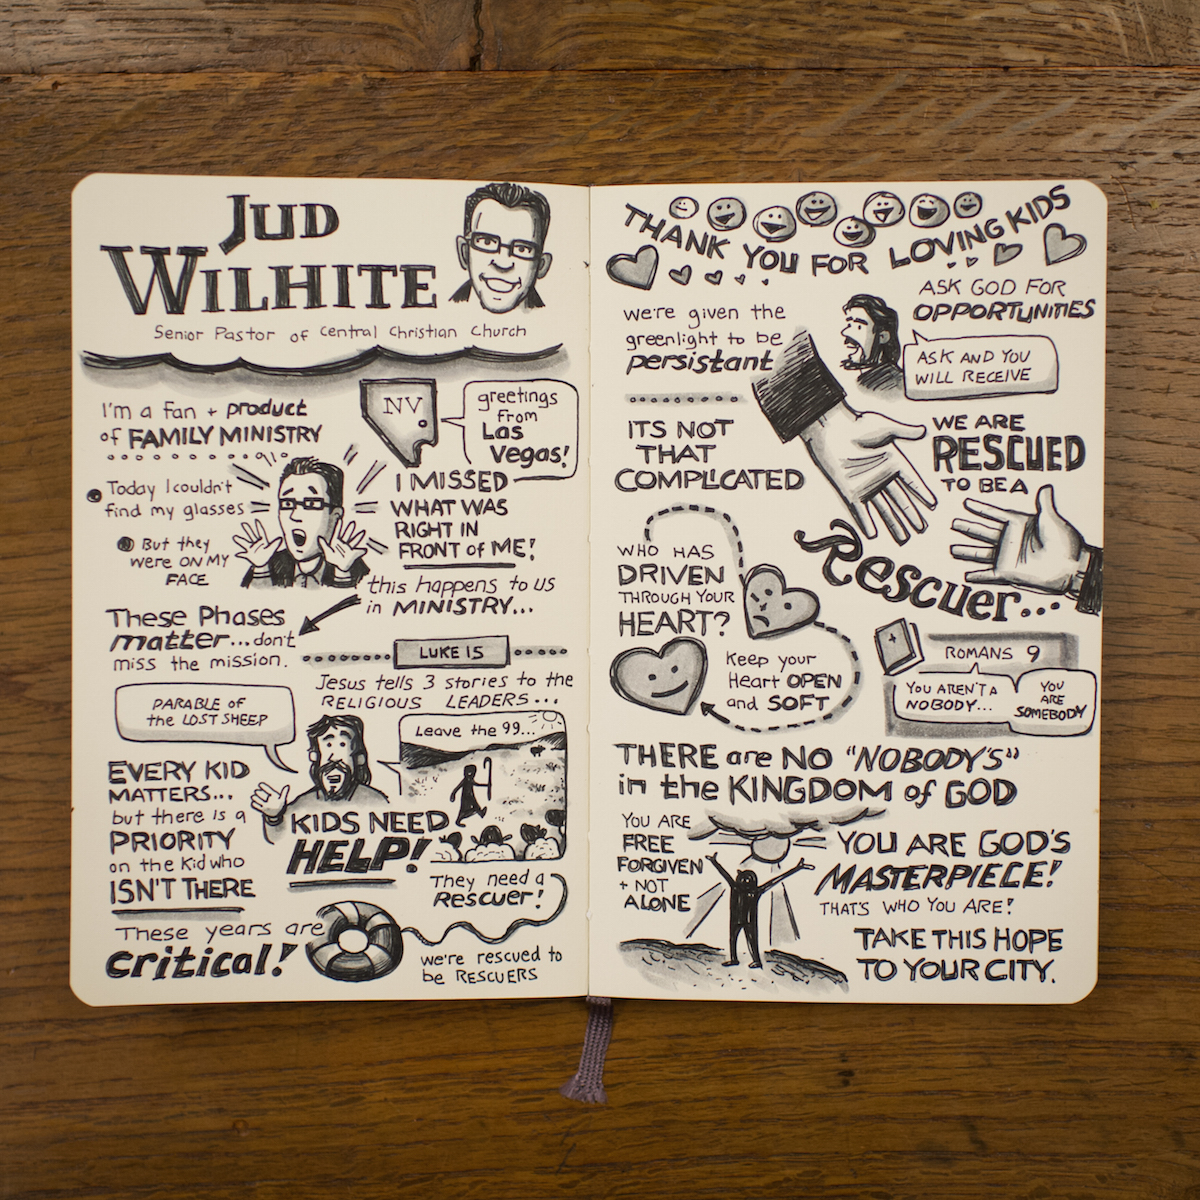 JUD
WILHITE
Senior Pastor of Central Christian Church
I'm a fan + product
of FAMILY MINISTRY
NV
greetings
from
Las
Vegas!
Today I couldn't
find my glasses
But they
were ON MY
FACE
I MISSED
WHAT WAS
RIGHT IN
FRONT of ME!
this happens to us
in MINISTRY...
These Phases
matter... don't
miss the mission.
LUKE 15
Jesus tells 3 stories to the
RELIGIOUS LEADERS...
PARABLE of
the LOST SHEEP
Leave the 99...
EVERY KID
MATTERS...
but there is a
PRIORITY
on the Kid who
ISN'T THERE
KIDS NEED
HELP!
They need a
Rescuer!
These years are
critical!
we're rescued to
be RESCUERS
THANK YOU FOR LOVING KIDS
we're given the
greenlight to be
persistant
ASK GOD FOR
OPPORTUNITIES
ASK AND YOU
WILL RECEIVE
ITS NOT
THAT
COMPLICATED
WE ARE
RESCUED
TO BE A
Rescuer...
WHO HAS
DRIVEN
THROUGH YOUR
HEART?
Keep your
Heart OPEN
and SOFT
ROMANS 9
YOU AREN'T A
NOBODY...
YOU
ARE
SOMEBODY
THERE are NO "NOBODY'S"
in the KINGDOM of GOD
YOU ARE
FREE
FORGIVEN
+ NOT
ALONE
YOU ARE GOD'S
MASTERPIECE!
THAT'S WHO YOU ARE!
TAKE THIS HOPE
TO YOUR CITY.